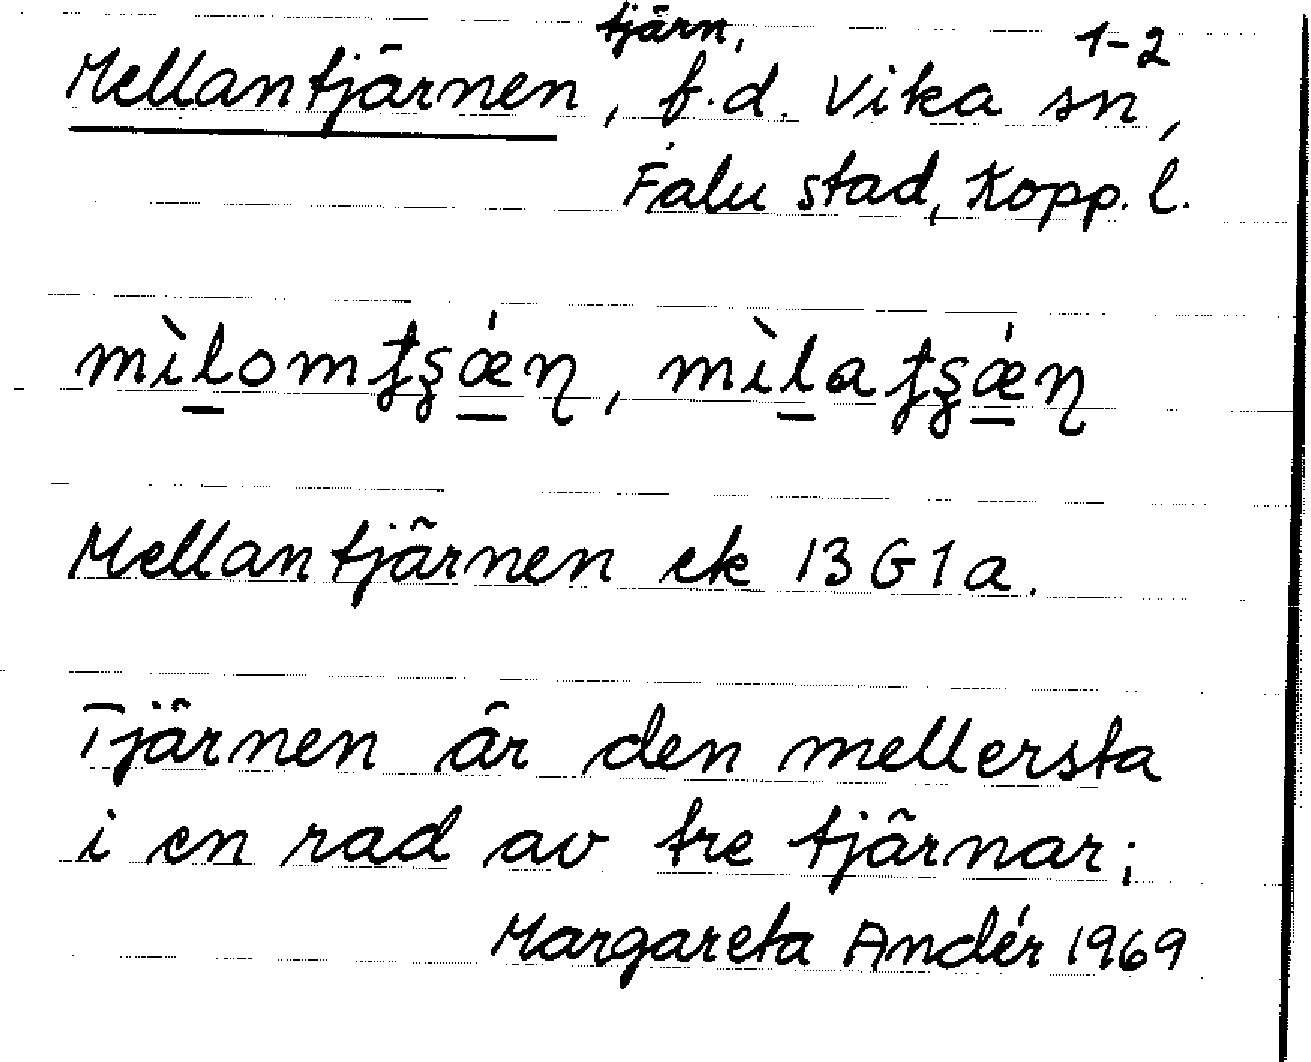 tjärn, 1-2
Mellantjärnen, f.d. Vika sn,
Falu stad, Kopp. l.
mìlomʈʂǽɳ, mìlaʈʂǽɳ
Mellantjärnen ek 13G1a.
Tjärnen är den mellersta
i en rad av tre tjärnar;
Margareta Andér 1969